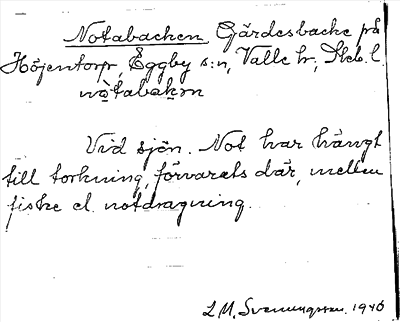 Notabacken Gärdesbacke på
Höjentorp, Eggby s:n, Valle hr, Skb. l.
nò̱tabak̠ɘn
Vid sjön. Not har hängt
till torkning, förvarats där, mellan
fiske el. notdragning.
L M. Svenungsson. 1940